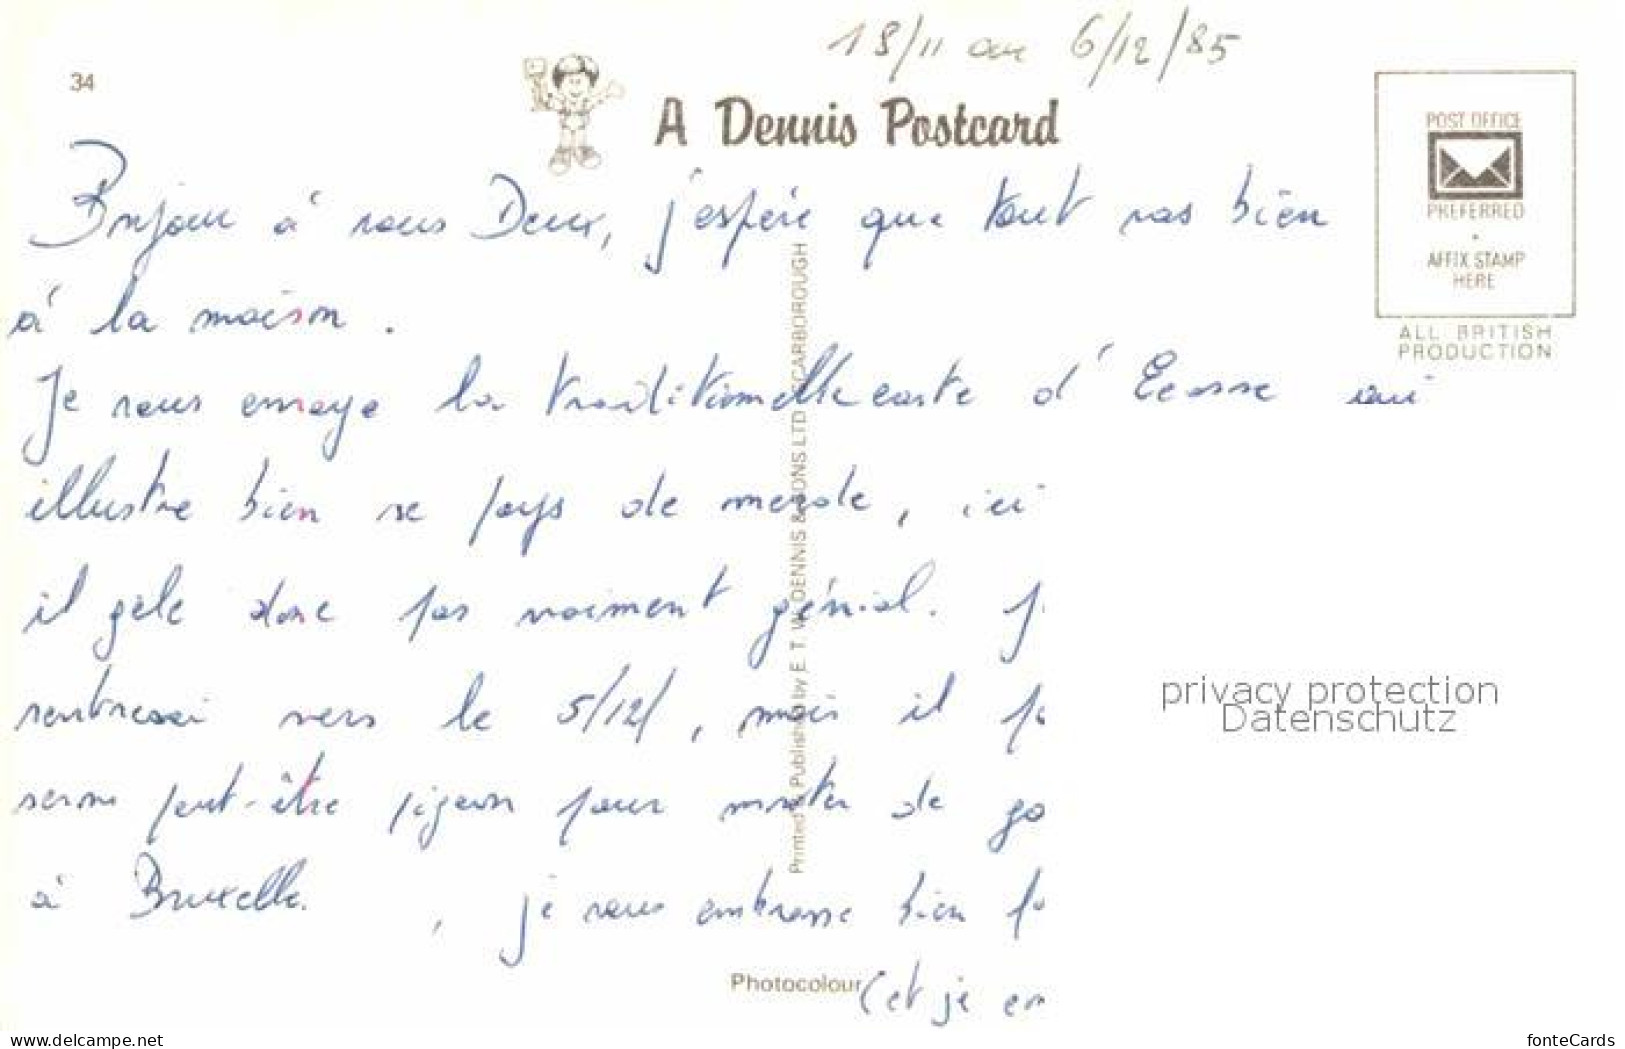 18/11 au 6/12/85
34
A Dennis Postcard
POST OFFICE
PREFERRED
AFFIX STAMP
HERE
ALL BRITISH
PRODUCTION
Bonjour à vous Deux, j'espère que tout vas bien
à la maison.
Je vous envoye la traditionnelle carte d'Ecosse qui
illustre bien se pays de merde, ici
il gèle donc pas vraiment génial.
rentrerai vers le 5/12/, mais il
peut-être pigeon pour monter de
à Bruxelle. , je vous embrasse bien
(et je
Printed & Published by E. T. W. DENNIS & SONS LTD SCARBOROUGH
Photocolour
privacy protection
Datenschutz
www.delcampe.net
fonteCards